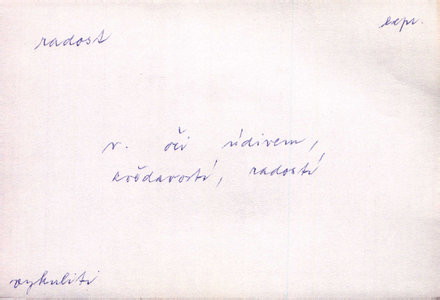 expr.
radost
v. oči údivem,
zvědavostí, radostí
vykuliti